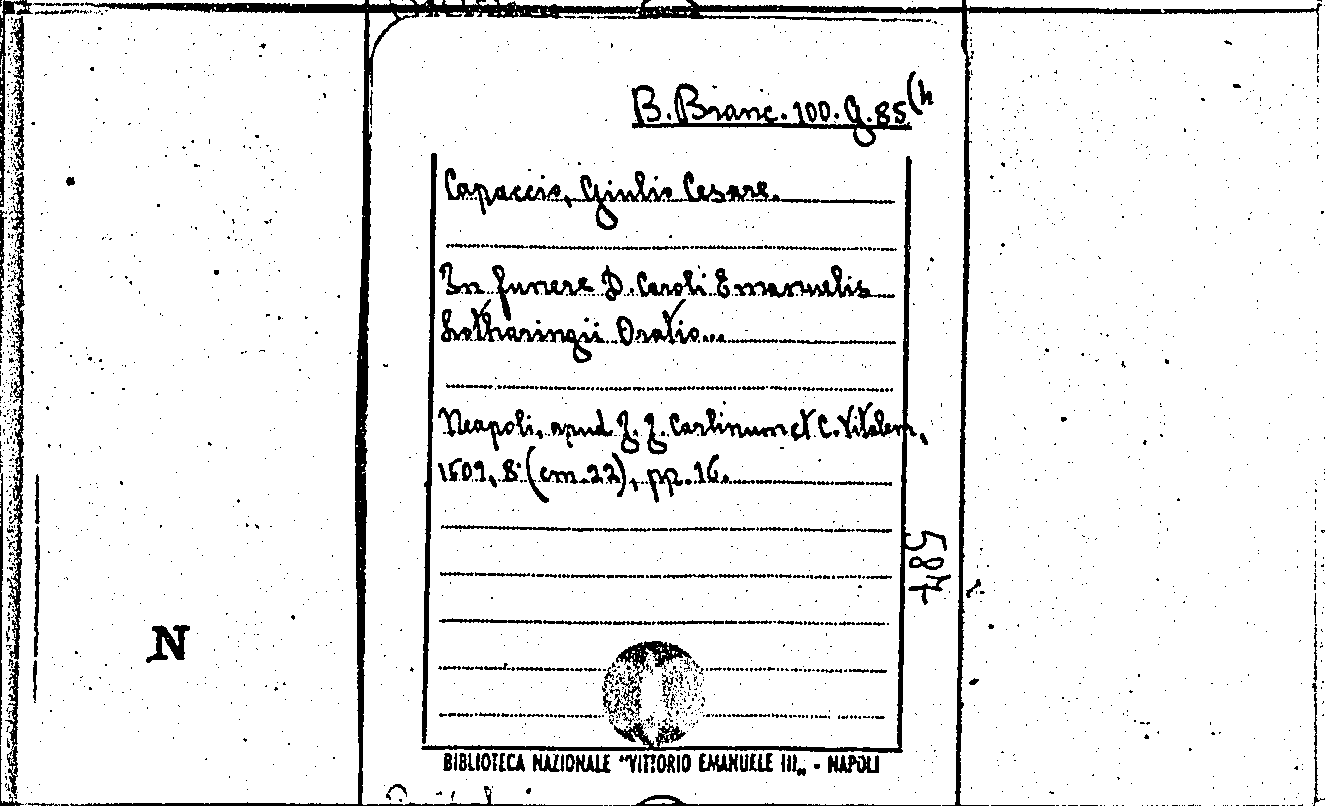 B. Branc. 100. G. 85(4
Capaccio, Giulio Cesare.
In funere D. Caroli Emanuelis
Lotharingii Oratio...
Neapoli, apud J. J. Carlinum et C. Vitalem,
1609, 8° (cm. 22), pp. 16.
587
N
BIBLIOTECA NAZIONALE "VITTORIO EMANUELE III„ - NAPOLI